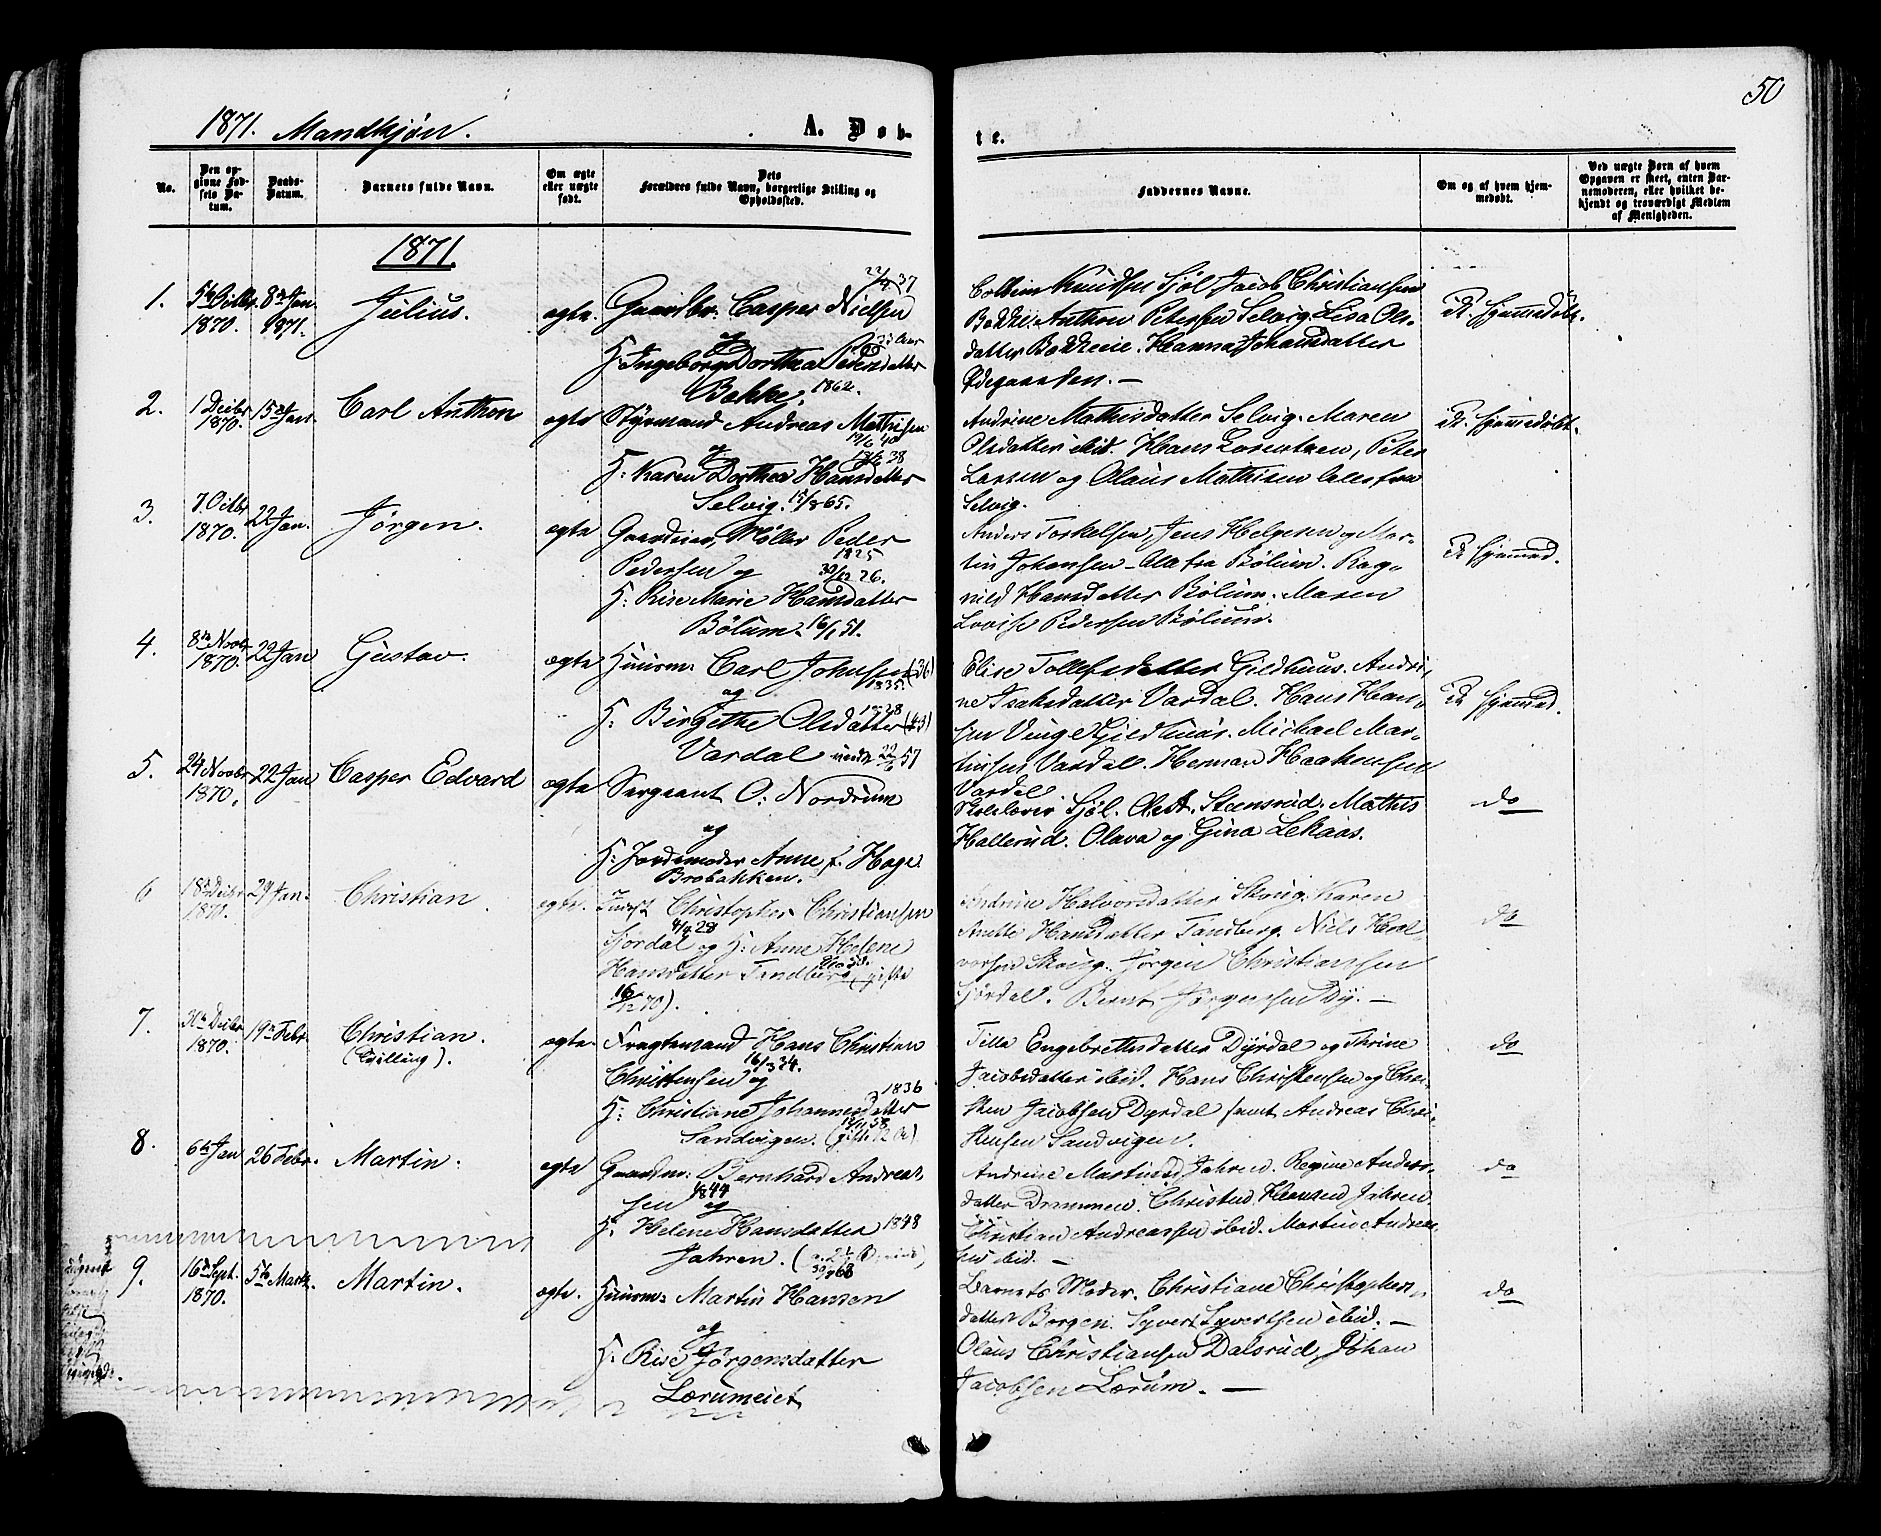 50
1871. Mandkjøn. A. Døb-
te.
No.
Den opgivne Fødsels Datum.
Daabs-Datum.
Barnets fulde Navn.
Om ægte eller uægte født.
Dets Forældres fulde Navn, borgerlige Stilling og Opholdssted.
Faddernes Navne.
Om og af hvem hjemmedøbt.
Ved uægte Børn af hvem Opgaven er skeet, enten Barnemoderen, eller hvilket bekjendt og troværdigt Medlem af Menigheden.
1871.
1. 5te Octbr. 1870. 8de Jan. 1871. Julius. ægte. Gaardbr. Casper Nielsen
og
H: Ingeborg Dorthea Pedersdatter
Bakke. 1862.
Knudsen Sjøl Jacob Christiansen
Anthon Petersen Selvig. Lisa Ols-
datter Hanna Johansdatter
Ødegaarden. —
2. 1 Decbr 1870. 15de Jan. Carl Anthon ægte Styrmand Andreas Mathisen
og
H: Karen Dorthea Hansdatter
Selvig. 15/8 65.
Andrine Mathisdatter Selvig. Maren
Olsdatter ibid. Hans Lorentzen, Peter
Larsen og Olaus Mathisen alle fra
Selvig.
3. 7. Octbr 1870. 22 Jan. Jørgen. ægte Gaardeier, Møller Peder
1825
Pedersen og 30/12 26.
H: Rise Marie Hansdatter
Bølum. 16/1 51.
Anders Torkelsen, Jens Helgesen og Mar-
tin Johansen - Alle fra Bølum. Rag-
nild Hansdatter Bølum. Maren
Lovise Pedersen Bølum.
4. 8de Novbr 1870. 22 Jan Gustav. ægte Huusm: Carl Johnsen (36)
1835.
og 1828
H: Birgithe Olsdatter
Vardal
Elise Tollefsdatter Gjeldhuus. Andri-
ne Isaksdatter Vardal. Hans Han-
sen Vinge Gjeldhuus. Michael Mar-
tinsen Vardal. Herman Haakensen
Vardal
5. 24 Novbr 1870. 22 Jan Casper Edvard ægte Sergeant O: Nordrum
og
H: Jordemoder Anne f. Hage
Brobakken.
Skolelærer Sjøl. Ole A. Steensrud. Mathis
Hallerud. Olava og Gina Lekaas.
do
6 18de Decbr 1870. 29 Jan. Christian ægte. Christopher Christiansen
Sjordal og H: Anne Helene
Hansdatter Tandberg (gifte
16/12 70).
Andrine Halvorsdatter Skoug. Karen
Anette Hansdatter Tandberg. Niels Hal-
vorsen Skoug. Jørgen Christiansen
Sjordal. Bernt Jørgensen Dy. —
do
7. 31te Decbr 1870. 19de Febr. Christian. (Tvilling). ægte. Fragtemand Hans Christian
16/3 34.
Christensen og
1836
H: Christiane Johannesdatter
Sandvigen.
Tilla Engebrettsdatter Dyrdal og Thrine
Jacobsdatter ibid. Hans Christensen og Chri-
sten Jacobsen Dyrdal samt Andreas Chri-
stensen Sandvigen.
do
8. 6te Jan 26 Febr. Martin. ægte Gaardm: Bernhard Andreas-
sen 1844 og
H: Helene Hansdatter 1848
Jahren.
Andrine Martinsd. Jahren. Regine Anders-
datter Drammen. Christen Hansen Jahren
Christian Andreassen ibid. Martin Andreas-
sen ibid. —
do
9. 16de Sept. 1870. 5te Marts. Martin. ægte. Huusm: Martin Hansen
og
H: Rise Jørgensdatter
Lørumeiet
Barnets Moder. Christiane Christophers-
datter Borgen. Syvert Syvertsen ibid. —
Olaus Christiansen Dalsrud, Johan
Jacobsen Lørum. —
do